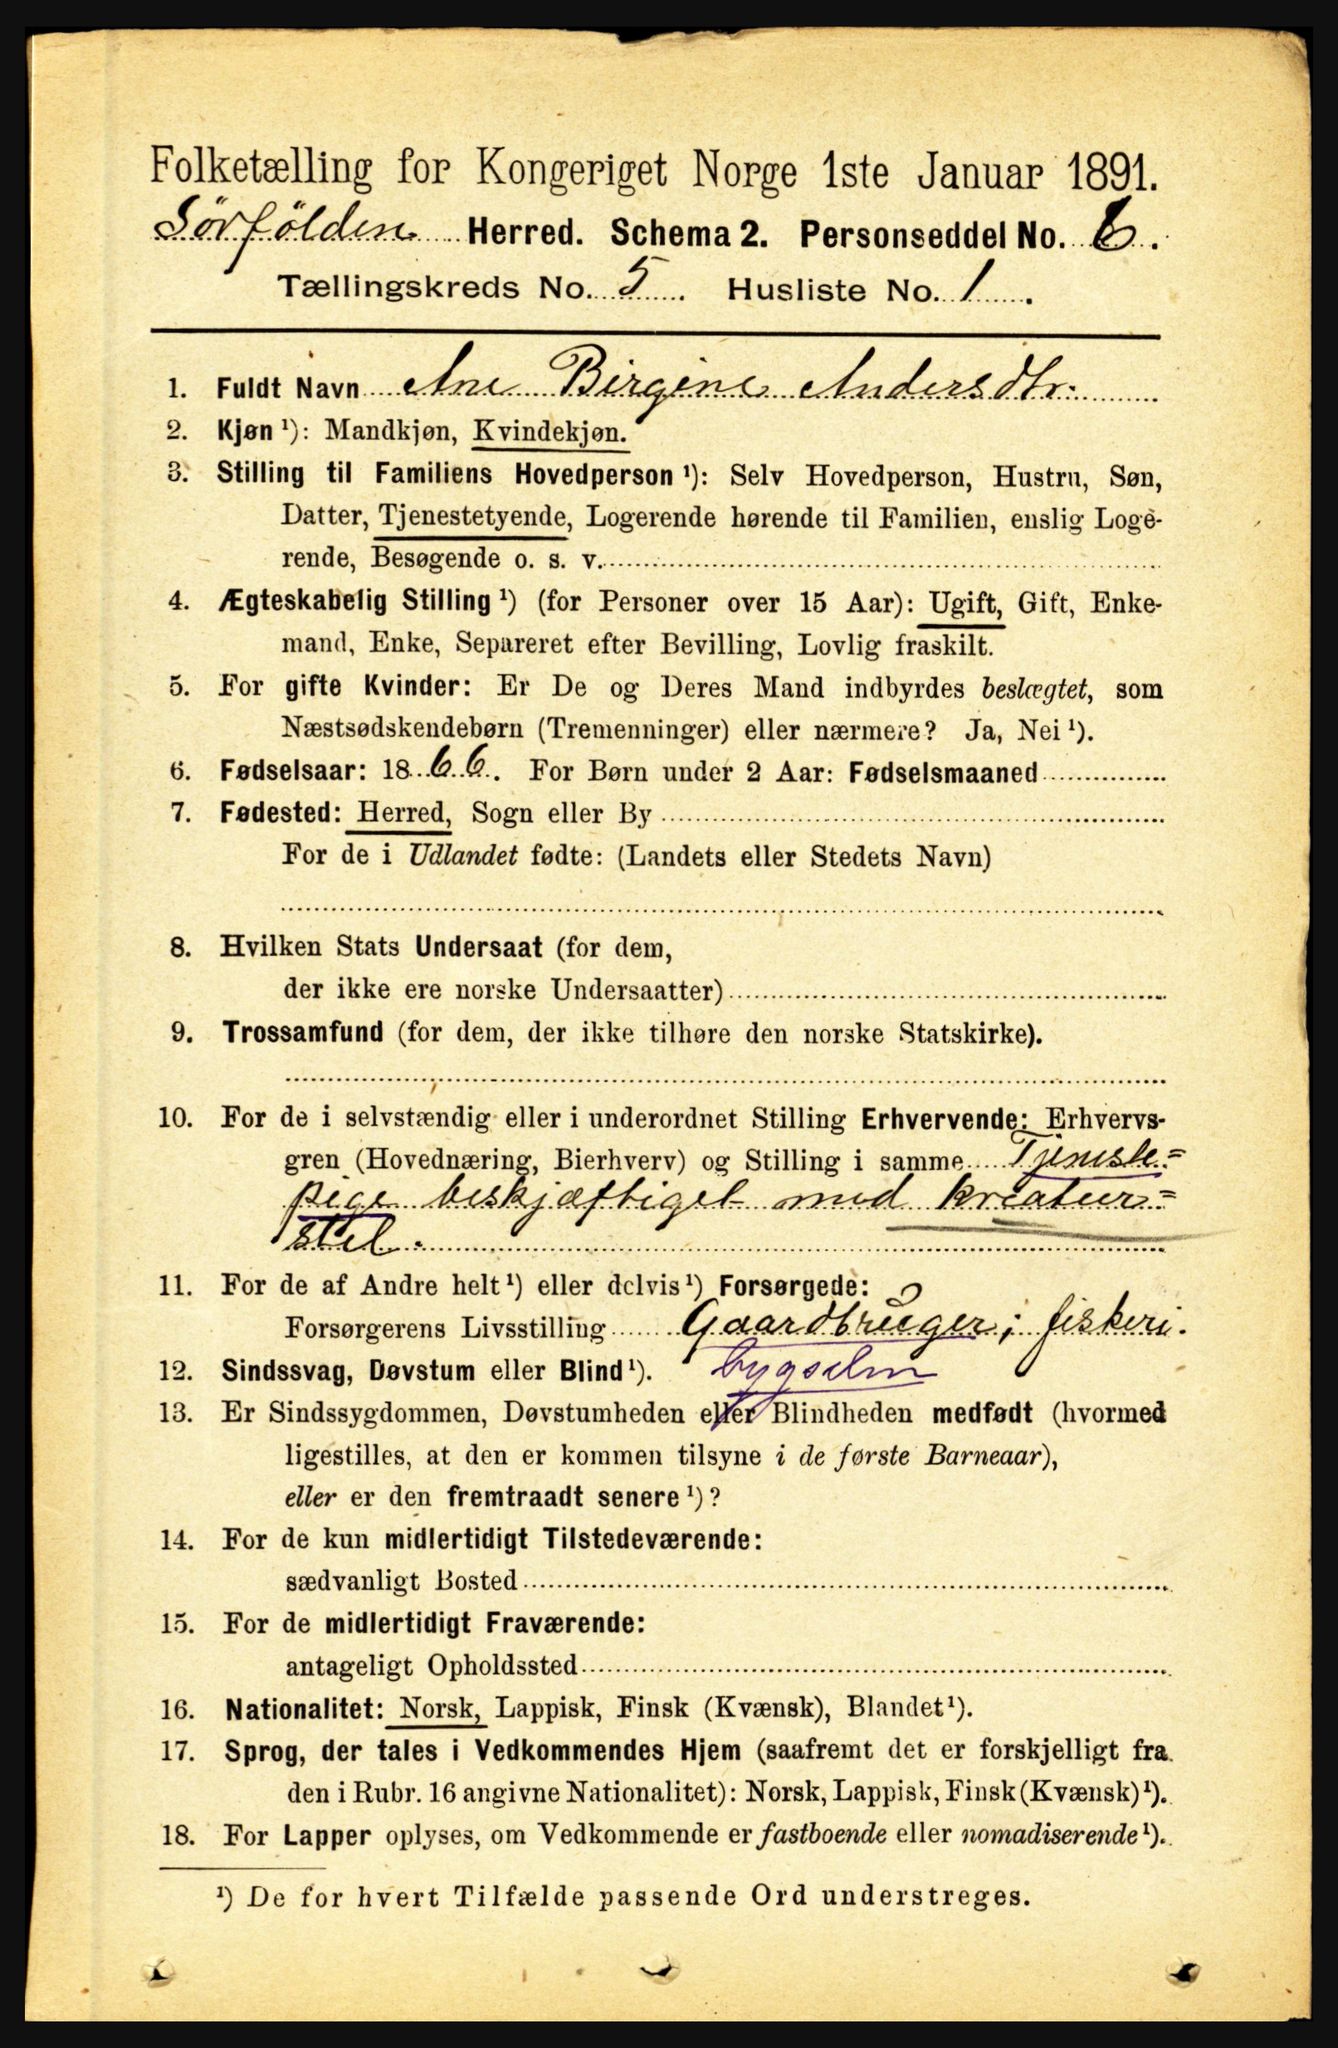 Folketælling for Kongeriget Norge 1ste Januar 1891.
Sörfölden Herred. Schema 2. Personseddel No. 6.
Tællingskreds No. 5. Husliste No. 1.
1. Fuldt Navn Ane Birgine Andersdtr:
2. Kjøn ¹): Mandkjøn, Kvindekjøn.
3. Stilling til Familiens Hovedperson ¹): Selv Hovedperson, Hustru, Søn,
Datter, Tjenestetyende, Logerende hørende til Familien, enslig Loge-
rende, Besøgende o. s. v.
4. Ægteskabelig Stilling ¹) (for Personer over 15 Aar): Ugift, Gift, Enke-
mand, Enke, Separeret efter Bevilling, Lovlig fraskilt.
5. For gifte Kvinder: Er De og Deres Mand indbyrdes beslægtet, som
Næstsødskendebørn (Tremenninger) eller nærmere? Ja, Nei ¹).
6. Fødselsaar: 1866. For Børn under 2 Aar: Fødselsmaaned
7. Fødested: Herred, Sogn eller By
For de i Udlandet fødte: (Landets eller Stedets Navn)
8. Hvilken Stats Undersaat (for dem,
der ikke ere norske Undersaatter)
9. Trossamfund (for dem, der ikke tilhøre den norske Statskirke).
10. For de i selvstændig eller i underordnet Stilling Erhvervende: Erhvervs-
gren (Hovednæring, Bierhverv) og Stilling i samme Tjeneste=
pige beskjæftiget med kreatur=
stel.
11. For de af Andre helt ¹) eller delvis ¹) Forsørgede:
Forsørgerens Livsstilling Gaardbruger; fiskeri.
12. Sindssvag, Døvstum eller Blind ¹). bygselm
13. Er Sindssygdommen, Døvstumheden eller Blindheden medfødt (hvormed
ligestilles, at den er kommen tilsyne i de første Barneaar),
eller er den fremtraadt senere ¹)?
14. For de kun midlertidigt Tilstedeværende:
sædvanligt Bosted
15. For de midlertidigt Fraværende:
antageligt Opholdssted
16. Nationalitet: Norsk, Lappisk, Finsk (Kvænsk), Blandet ¹).
17. Sprog, der tales i Vedkommendes Hjem (saafremt det er forskjelligt fra
den i Rubr. 16 angivne Nationalitet): Norsk, Lappisk, Finsk (Kvænsk) ¹).
18. For Lapper oplyses, om Vedkommende er fastboende eller nomadiserende ¹).
¹) De for hvert Tilfælde passende Ord understreges.